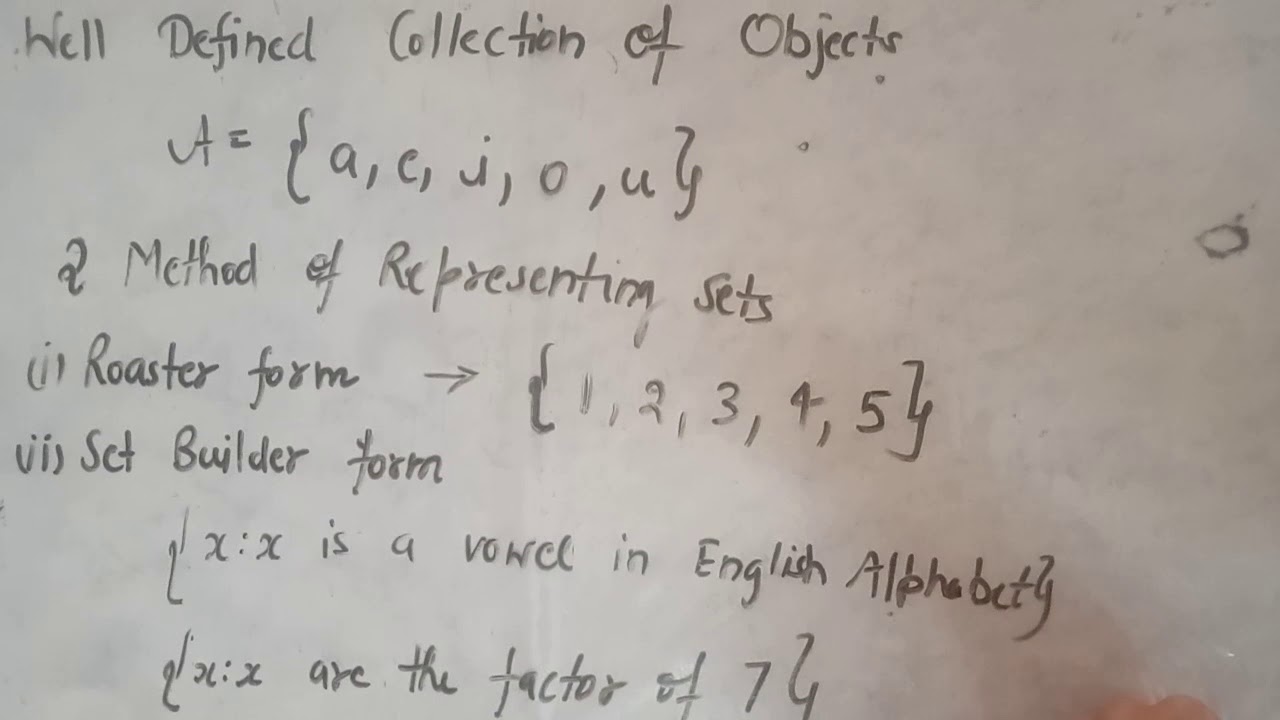 Well Defined Collection of Objects.
A = {a, e, i, o, u}
2 Method of Representing sets
(i) Roaster form → {1, 2, 3, 4, 5}
(ii) Set Builder form
{x:x is a vowel in English Alphabet}
{x:x are the factor of 7}